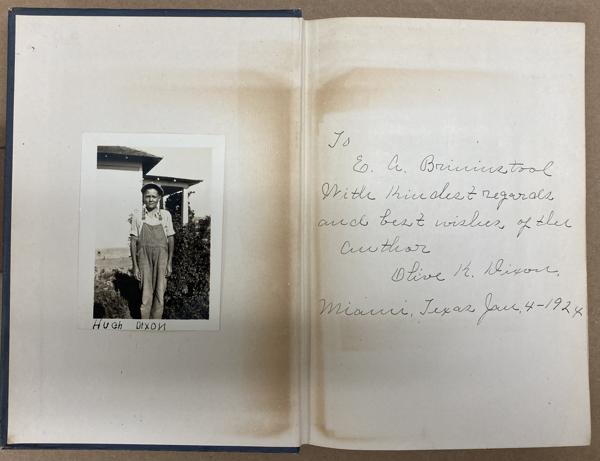 HUGH DIXON
To
E. A. Brininstool
With kindest regards
and best wishes of the
author
Olive K. Dixon.
Miami, Texas Jan, 4-1924